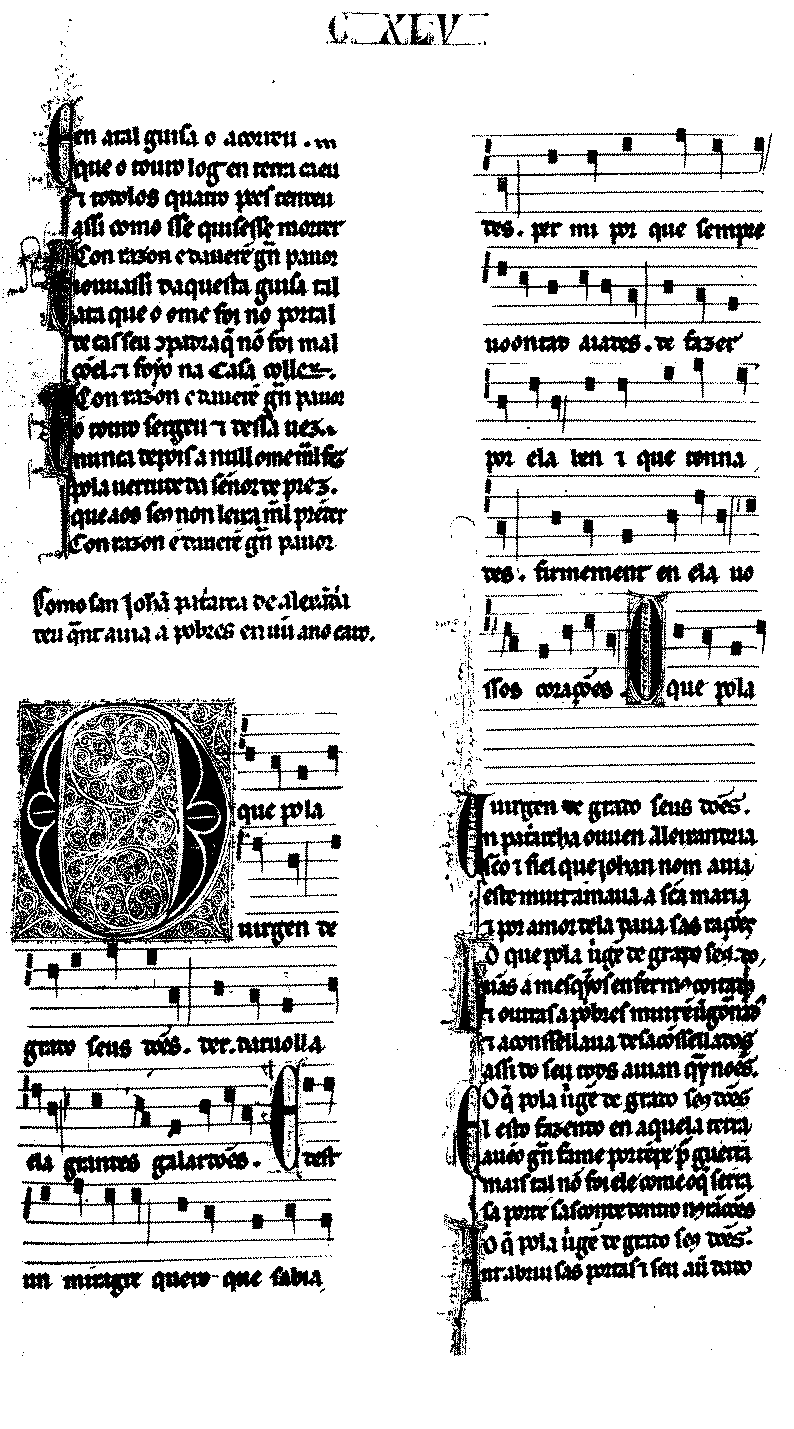 C XLV
en atal guisa o acorreu.
que o touro log en terra caeu
⁊ todolos quatro pes tendeu
assi como sse quisesse morrer
Con razon e daueré gñ pauor
assi daquesta guisa tal
ata que o ome foi no portal
de cas seu q̃ nõ foi mal
⁊ foisso na casa coller.
Con razon e daueré gñ pauor
o touro sergeu ⁊ dessa uez
nunca depois a null ome mal fez
pola uertude da sennor de prez.
que aos seus non leixa mal prẽder
Con razon e daueré gñ pauor
Como san Johã patarca de alexãdria
deu q̃nt auia a pobres en ũu ano caro.
O que pola
uirgen de
grado seus dões. der. dar uolla
ela grandes galardões. E dest
un miragre quero que sabia
des. per mi por que sempre
uoontad aiades. de fazer
por ela ben ⁊ que tonna
des. firmement en ela uo
ssos corações. O que pola
uirgen de grado seus dões.
Un patarcha ouu en Alexandria
sco ⁊ fiel que johan nom auia
este muit amaua a sca maria
⁊ por amor dela daua sas rações
O que pola uigẽ de grado ses. do,
a mesq̃os enfermos coitados
⁊ outros a pobres muit eñgonnados
⁊ aconssellaua desacõssellados
assi do seu todos auian q̃ynoes.
O q̃ pola uigẽ de grado ses dões
El esto fazendo en aquela terra
aueo gñ fame
mais tal nõ foi ele come oq̃ serra
sa porta
O q̃ pola uigẽ de grado ses dões.
nt abriu sas portas ⁊ seu auer dado